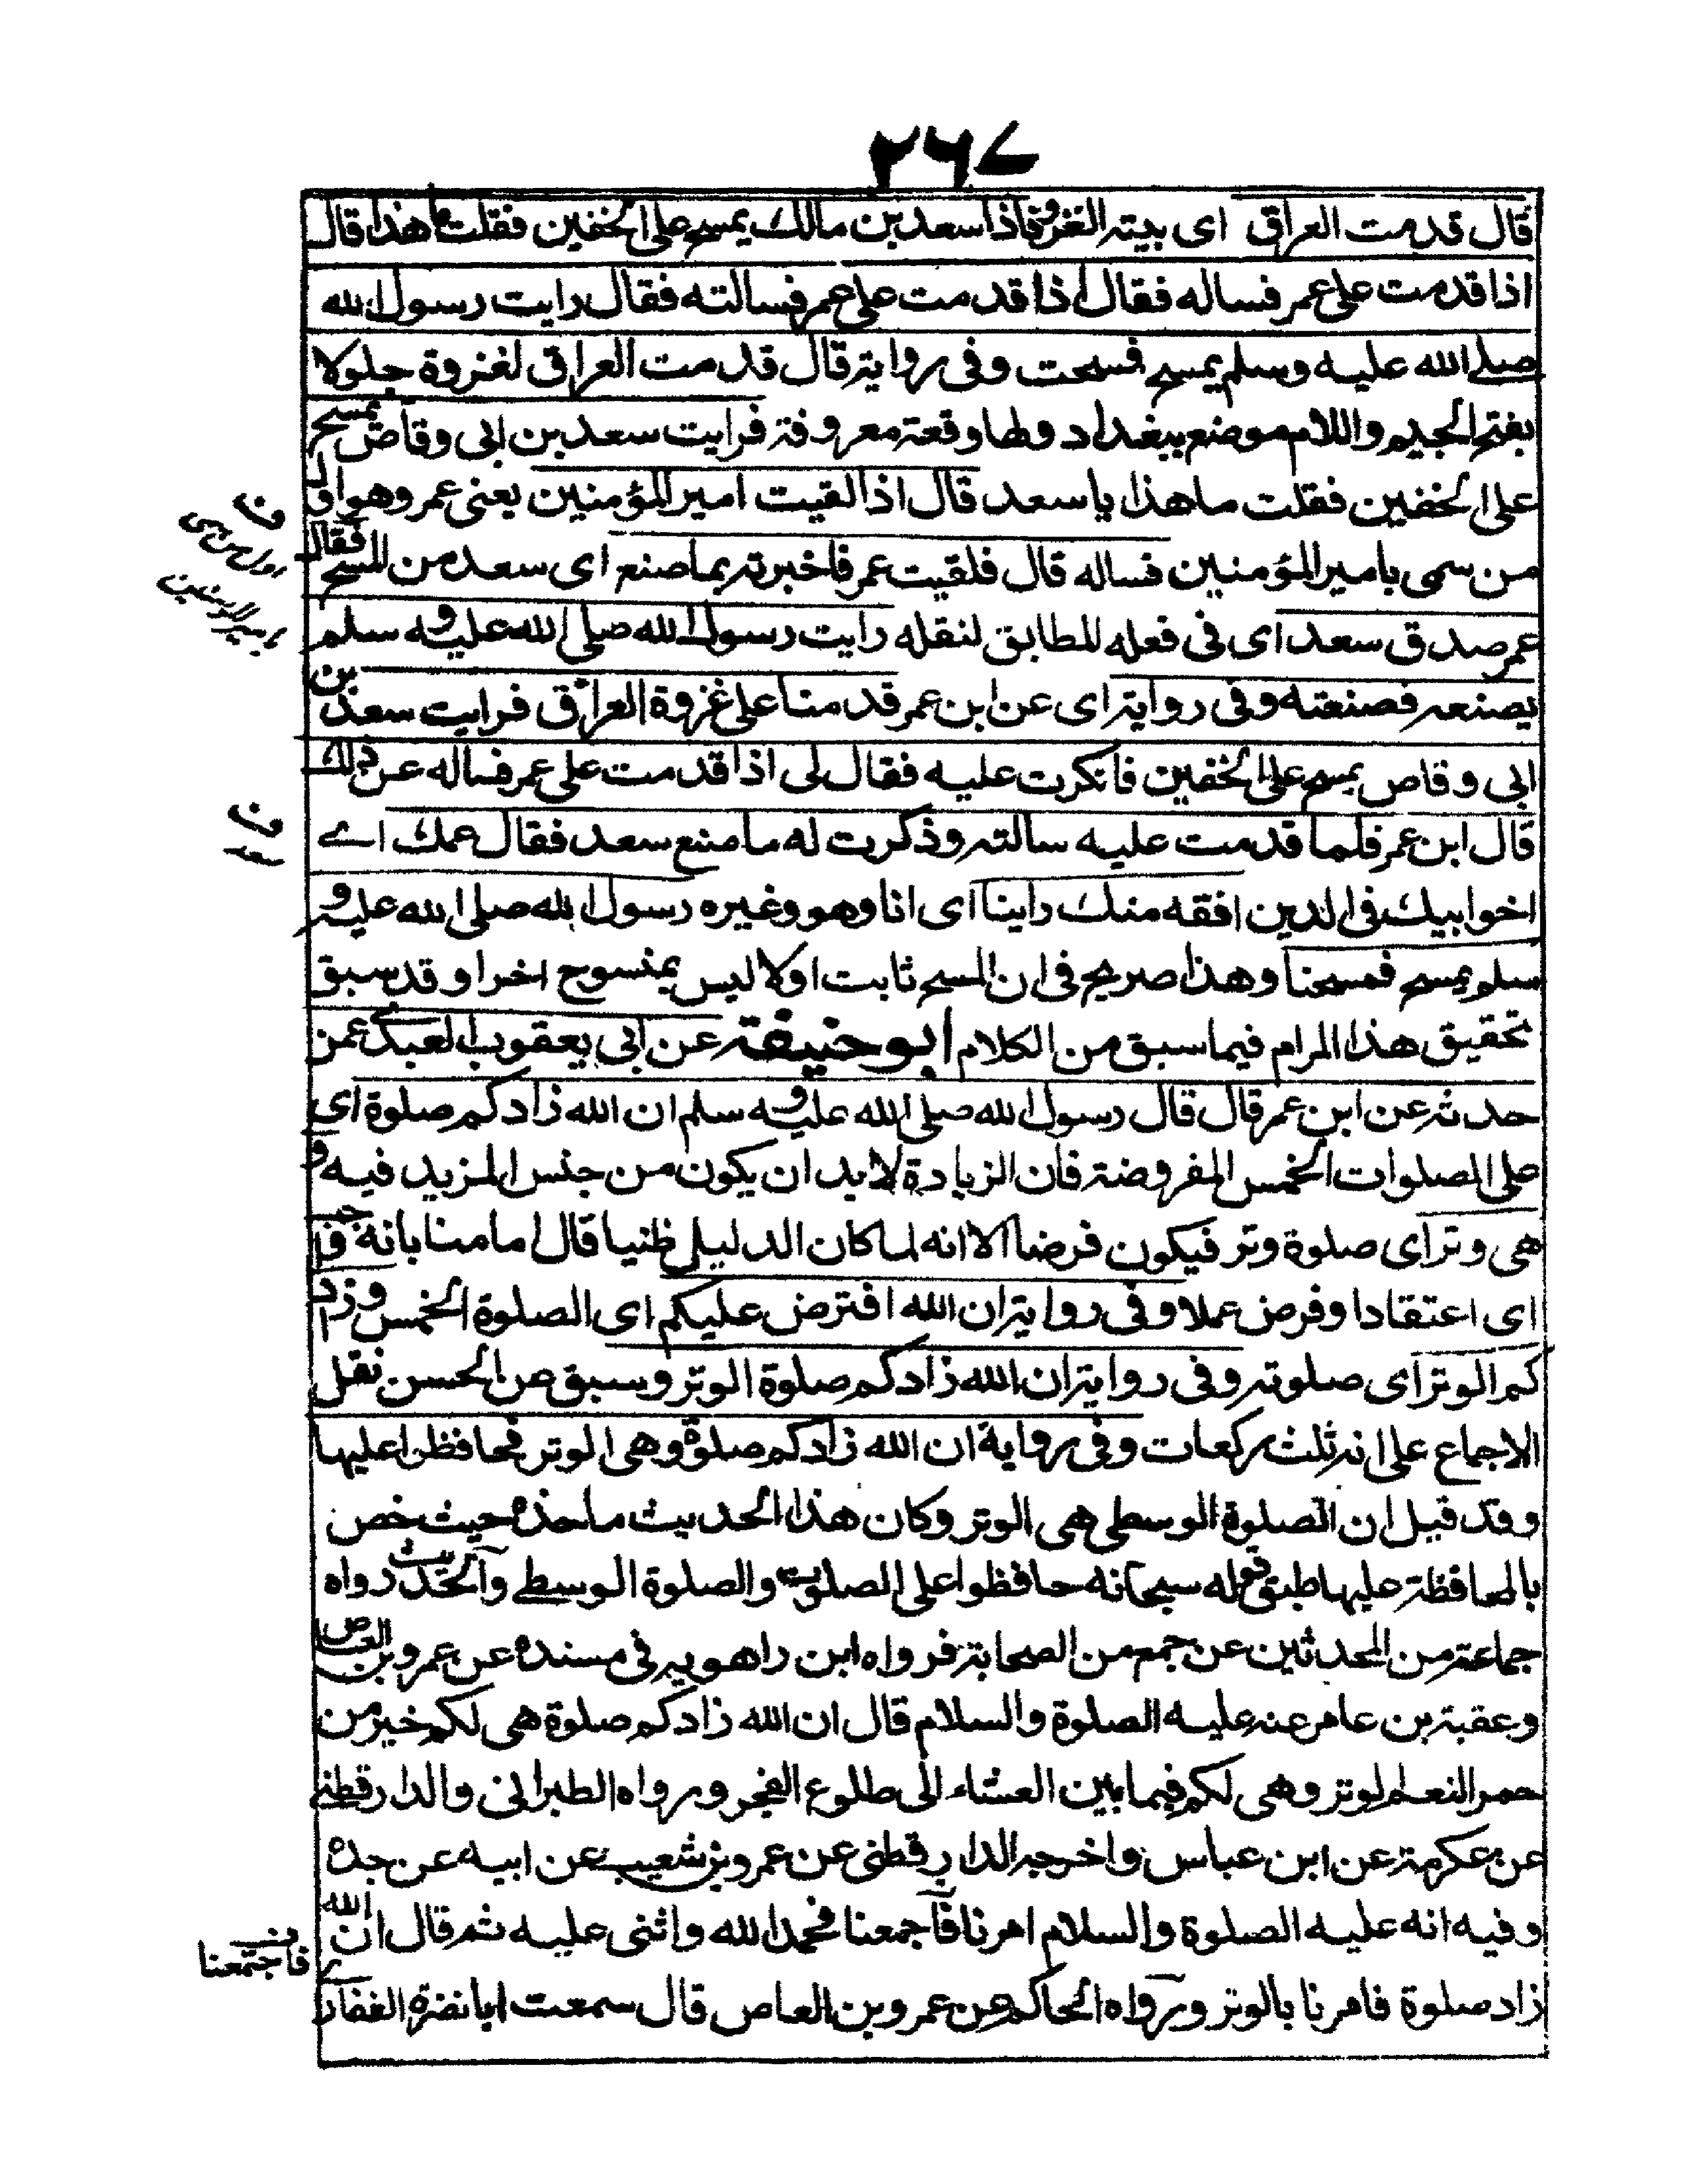 ٢٦٧
قال قدمت العراق اى بيته الغزو فاذا سعد بن مالك يمسح على الخفين فقلت ما هذا قال
اذا قدمت على عمر فساله فقال اذا قدمت على عمر فسالته فقال رايت رسول الله
صلى الله عليه وسلم يمسح فمسحت وفى رواية قال قدمت العراق لغزوة جلولا
بفتح الجيم واللام موضع ببغداد ولها وقعة معروفة فرايت سعد بن ابى وقاص يمسح
على الخفين فقلت ما هذا يا سعد قال اذا لقيت امير المؤمنين يعنى عمر وهو اول
من سمى بامير المؤمنين فساله قال فلقيت عمر فاخبرته بما صنع اى سعد من المسح فقال
عمر صدق سعد اى فى فعله المطابق لنقله رايت رسول الله صلى الله عليه و سلم
يصنعه فصنعته وفى رواية اى عن ابن عمر قدمنا على غزوة العراق فرايت سعد بن
ابى وقاص يمسح على الخفين فانكرت عليه فقال لى اذا قدمت على عمر فساله عن ذلك
قال ابن عمر فلما قدمت عليه سالته وذكرت له ما صنع سعد فقال عمك اے
اخو ابيك فى الدين افقه منك راينا اى انا وهو وغيره رسول الله صلى الله عليه و
سلم يمسح فمسحنا وهذا صريح فى ان المسح ثابت اولا ليس بمنسوح اخرا وقد سبق
تحقيق هذا المرام فيما سبق من الكلام ابو حنيفة عن ابى يعقوب العبدى عمن
حدثه عن ابن عمر قال قال رسول الله صلى الله عليه و سلم ان الله زادكم صلوة اى
على الصلوات الخمس المفروضة فان الزيادة لابد ان يكون من جنس المزيد فيه و
هى وتر اى صلوة وتر فيكون فرضا الا انه لما كان الدليل ظنيا قال امامنا بانه واجب
اى اعتقادا وفرض عملا وفى رواية ان الله افترض عليكم اى الصلوة الخمس وزاد
كم الوتر اى صلوته وفى رواية ان الله زادكم صلوة الوتر وسبق عن الحسن نقل
الاجماع على انه ثلث ركعات وفى رواية ان الله زادكم صلوة وهى الوتر فحافظوا عليها
وقد قيل ان الصلوة الوسطى هى الوتر وكان هذا الحديث ماخذه حيث خص
بالمحافظة عليها طبق قوله سبحانه حافظوا على الصلوت والصلوة الوسطى والحديث رواه
جماعة من المحدثين عن جمع من الصحابة فرواه ابن راهويه فى مسنده عن عمرو بن العاص
وعقبة بن عامر عنه عليه الصلوة والسلام قال ان الله زادكم صلوة هى لكم خير من
حمر النعم الوتر وهى لكم فيما بين العشاء الى طلوع الفجر ورواه الطبرانى والدارقطنى
عن عكرمة عن ابن عباس واخرجه الدارقطنى عن عمرو بن شعيب عن ابيه عن جده
وفيه انه عليه الصلوة والسلام امرنا فاجمعنا فحمد الله واثنى عليه ثم قال ان الله
زاد صلوة فامرنا بالوتر ورواه الحاكم عن عمرو بن العاص قال سمعت ابا نضرة الغفارى
ف
اول من سمى
بامير المؤمنين
ف
سعد
فاجتمعنا